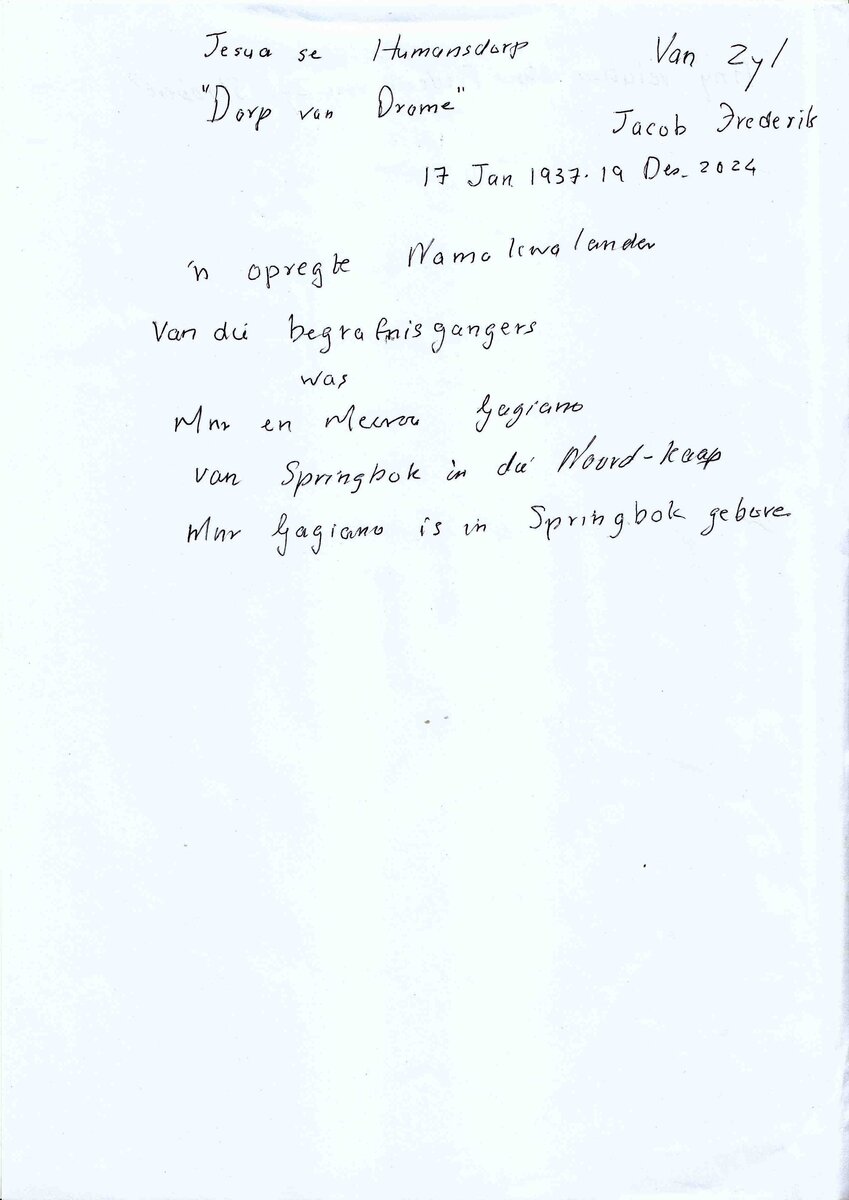 Jesua se Humansdorp
"Dorp van Drome"
Van Zyl
Jacob Frederik
17 Jan 1937 - 19 Des. 2024
'n opregte Namakwalander
Van die begrafnisgangers
was
Mnr en Mevrou Gagiano
van Springbok in die Noord-Kaap
Mnr Gagiano is in Springbok gebore